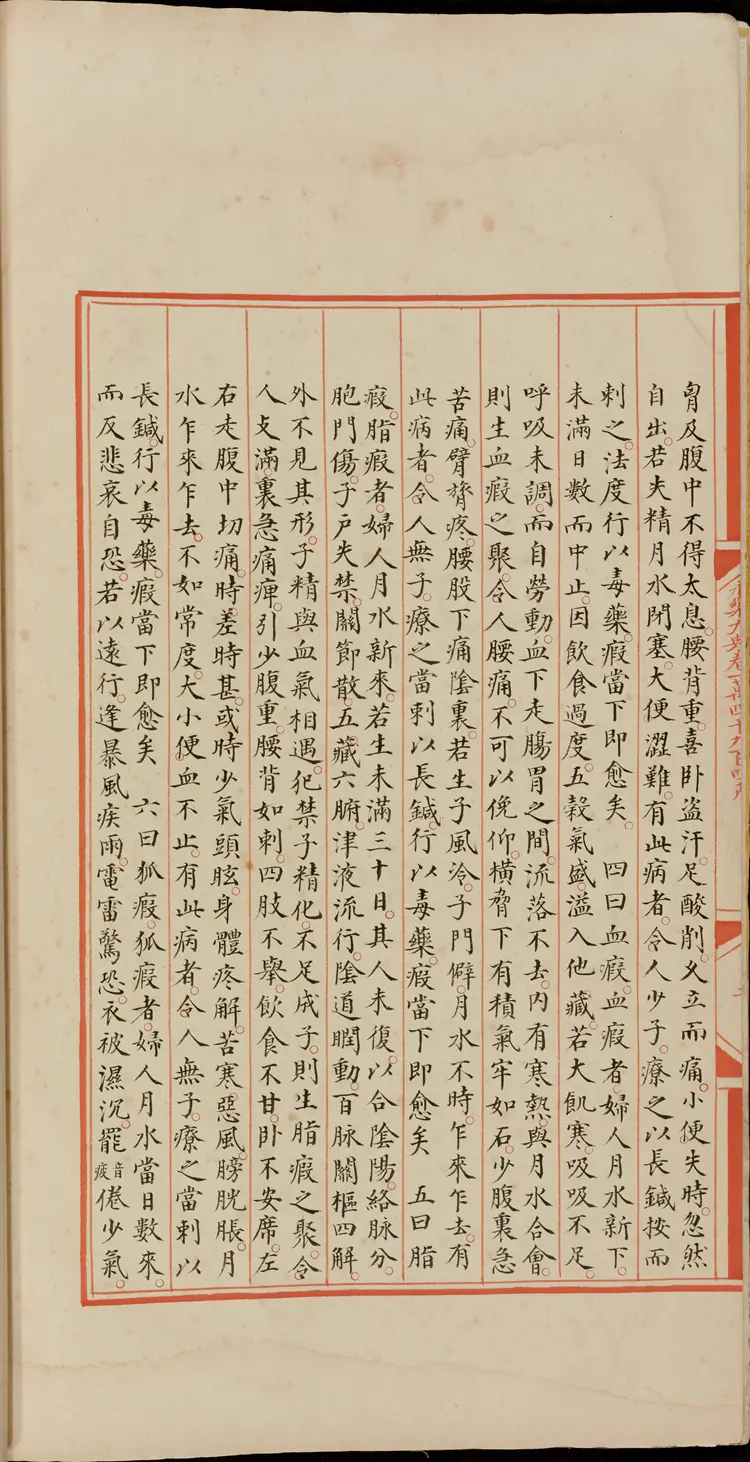 胷及腹中不得太息。腰背重。喜卧盗汗。足酸削。久立而痛。小便失時。忽然
自出。若失精月水閉塞。大便澀難。有此病者。令人少子。療之以長鍼按而
刺之。法度行以毒藥。瘕當下即愈矣。 四曰血瘕。血瘕者婦人月水新下。
未滿日數而中止。因飲食過度。五穀氣盛。溢入他藏。若大飢寒。吸吸不足。
呼吸未調。而自勞動。血下走腸胃之間。流落不去。内有寒熱。與月水合會。
則生血瘕之聚。令人腰痛。不可以俛仰。横脅下有積氣牢如石。少腹裏急
苦痛。臂膂疼。腰股下痛陰裏。若生子風冷。子門僻。月水不時。乍來乍去。有
此病者。令人無子。療之當刺以長鍼。行以毒藥。瘕當下即愈矣 五曰脂
瘕。脂瘕者。婦人月水新來。若生未滿三十日。其人未復。以合陰陽。絡脉分。
胞門傷。子户失禁。關節散。五藏六腑。津液流行。陰道䐃動。百脉關樞四解。
外不見其形。子精與血氣相遇。犯禁子精化。不足成子。則生脂瘕之聚。令
人支滿。裏急痛痺。引少腹重。腰背如刺。四肢不舉。飲食不甘。卧不安席。左
右走腹中切痛。時差時甚。或時少氣頭眩。身體疼解。苦寒惡風。膀胱脹。月
水乍來乍去。不如常度。大小便血不止。有此病者。令人無子。療之當刺以
長鍼。行以毒藥。瘕當下即愈矣 六曰狐瘕。狐瘕者。婦人月水當日數來。
而反悲哀自恐。若以遠行。逢暴風疾雨。電雷驚恐。衣被濕沉。罷音疲倦少氣。
永樂大典卷一萬四千九百四十九